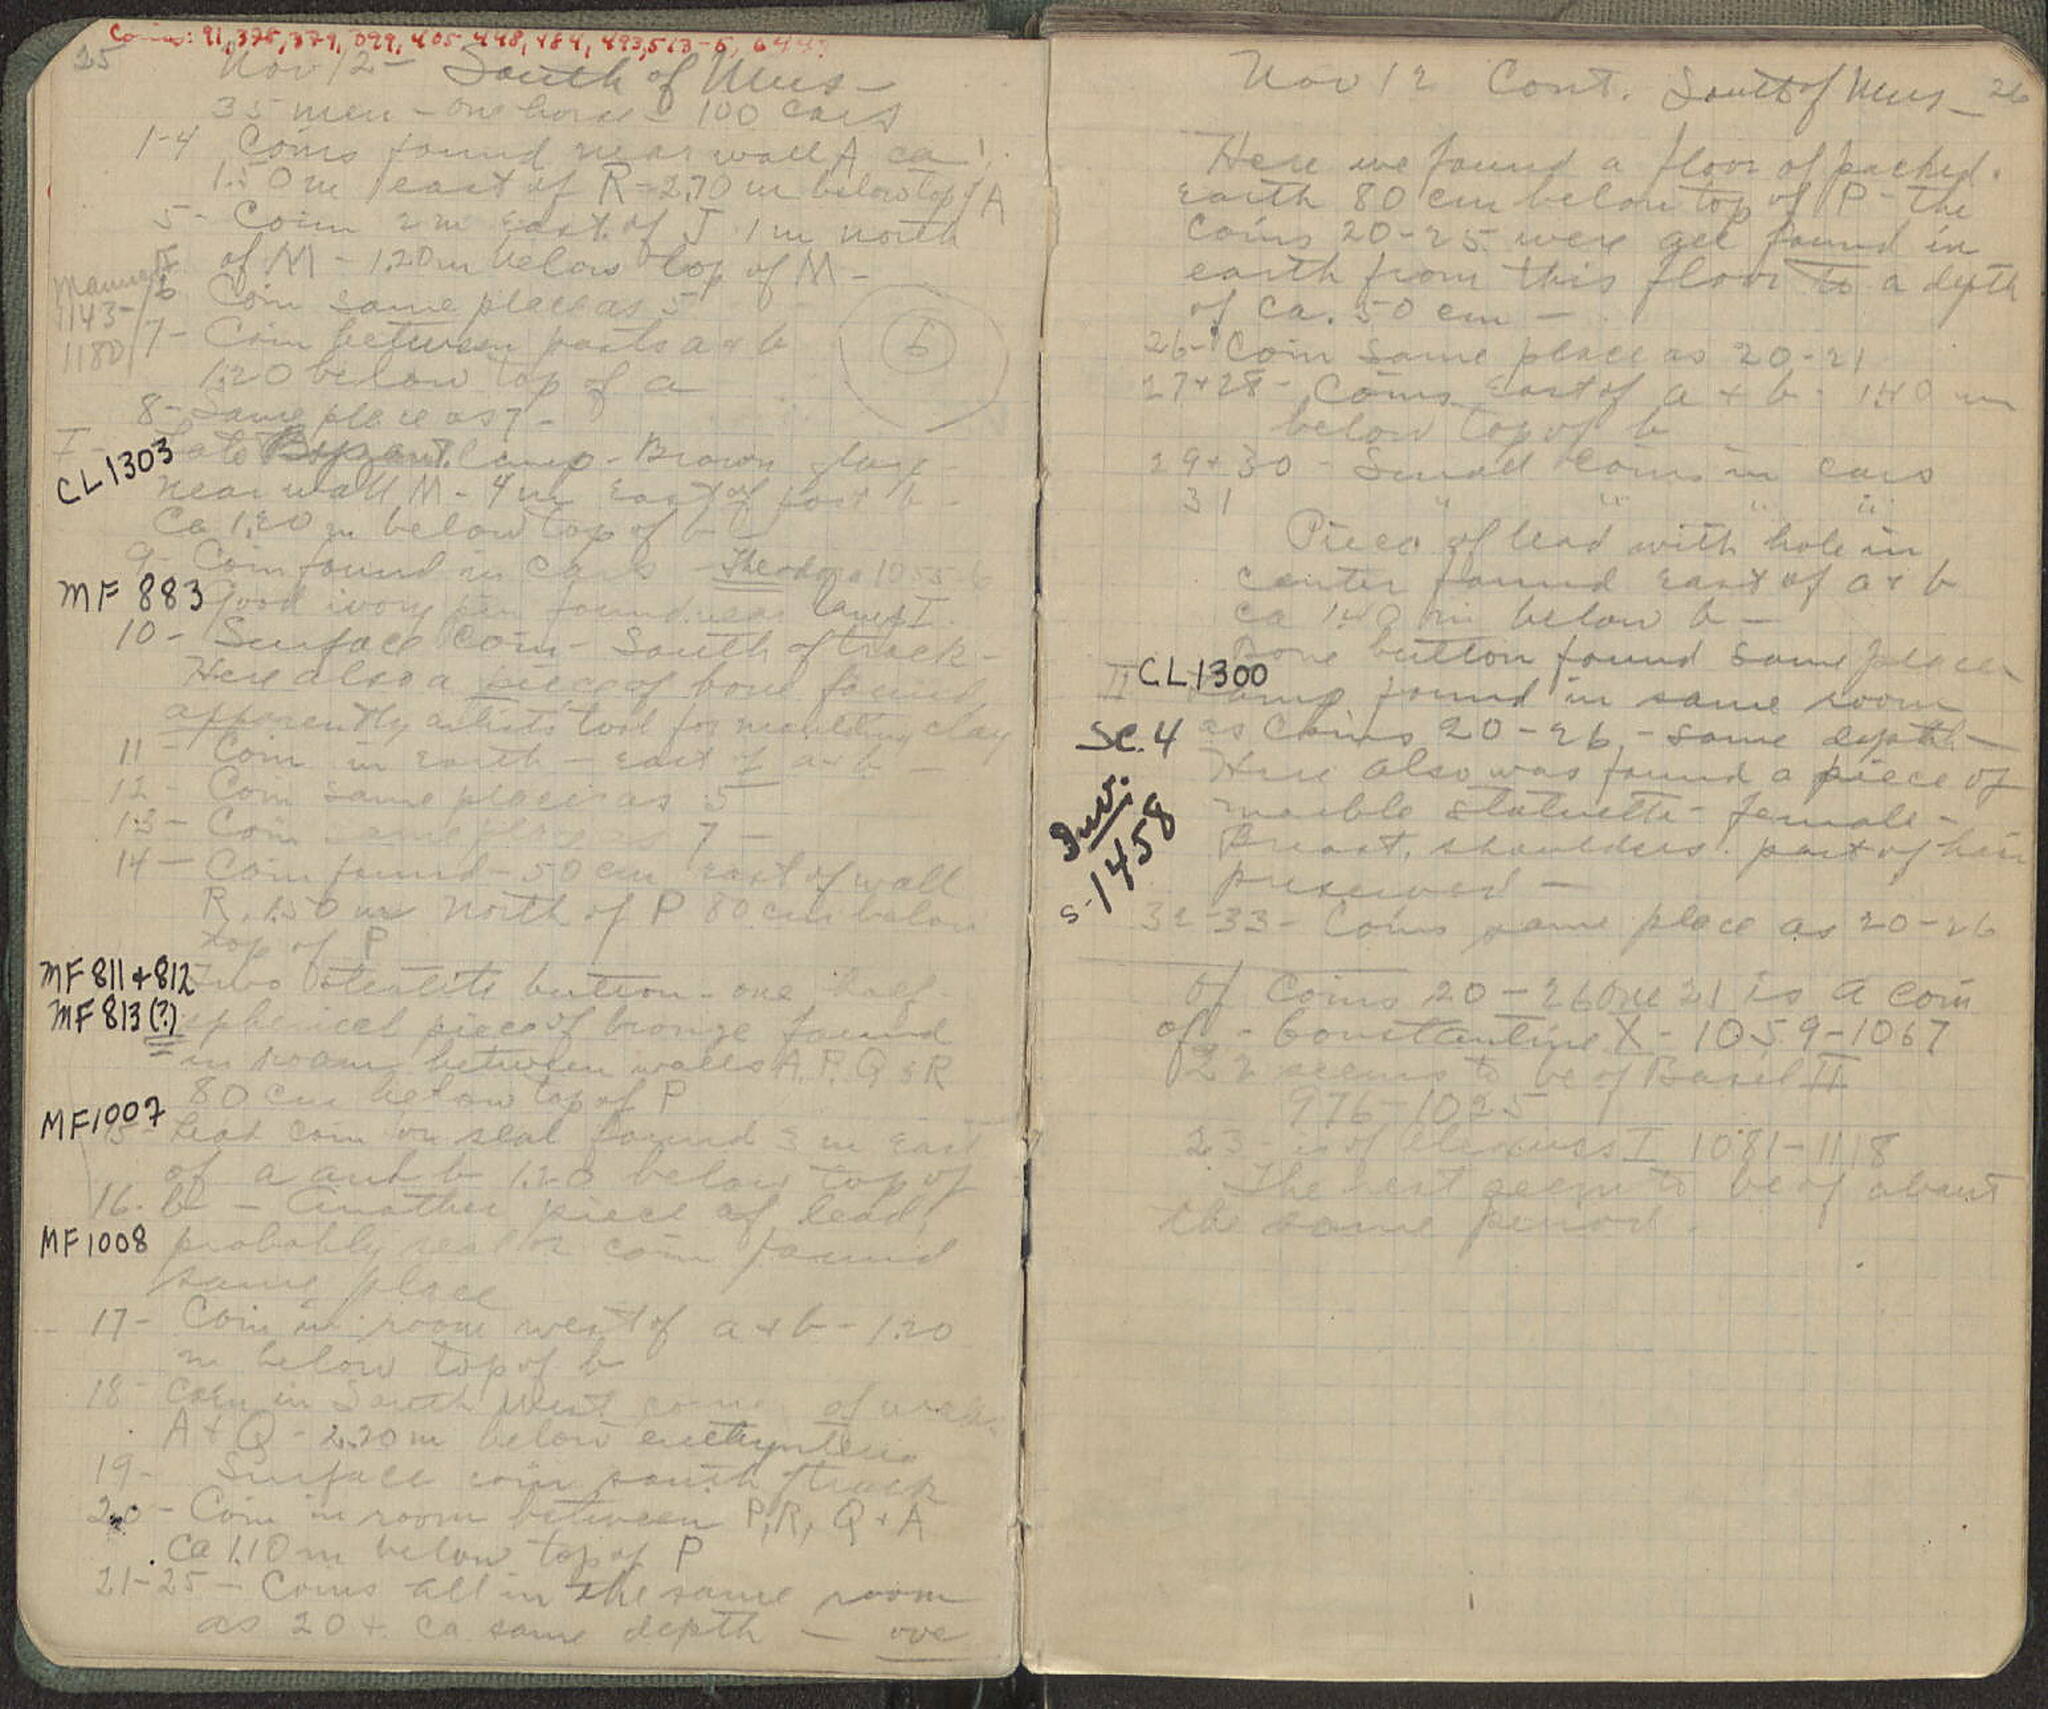 Coins: 91, 378, 379, 399, 405 448, 484, 493, 513-5, 644?
25
Nov 12 - South of Mus -
35 men - one horse - 100 cars
1-4 Coins found near wall A ca
1.50 m east of R - 2.70 m below top of A
5 - Coin 2 m east of J 1 m north
of M - 1.20 m below top of M -
Manuel I
1143-
1180
6 Coin same place as 5
7 - Coin between posts a + b
1.20 below top of a
6
8 - Same place as 7 -
I - Late Byzant. lamp - Brown glaze -
CL 1303
near wall M - 4 m east of post b -
Ca 1.20 m below top of b -
9 - Coin found in cars - Theodora 1055-6
MF 883
Good ivory pin found near lamp I.
10 - Surface Coin - South of track -
Here also a piece of bone found,
apparently artists' tool for moulding clay
11 - Coin in earth - east of a + b -
12 - Coin same place as 5
13 - Coin same place as 7 -
14 - Coin found - 50 cm east of wall
R. 1.50 m north of P 80 cm below
top of P
MF 811 + 812
Two steatite button - one half
MF 813 (?)
spherical piece of bronze found
in room between walls A, P, Q & R
80 cm below top of P
MF 1007
15 - Lead coin or seal found 3 m east
of a and b 1.20 below top of
16. b - Another piece of lead,
MF 1008
probably seal or coin found
same place
17 - Coin in room west of a + b - 1.20
m below top of b
18 - Coin in South West corner of walls
A + Q - 2.20 m below euthynteria
19 - Surface coin south of track
20 - Coin in room between P, R, Q + A
ca 1.10 m below top of P
21-25 - Coins all in the same room
as 20 + ca same depth - over
Nov 12 Cont. South of Mus - 26
Here we found a floor of packed
earth 80 cm below top of P - the
coins 20-25 were all found in
earth from this floor to a depth
of ca. 50 cm -
26 - Coin same place as 20-21
27 + 28 - Coins east of a + b - 1.40 m
below top of b
29 + 30 - Small coins in cars
31 " " " "
Piece of lead with hole in
center found east of a + b
ca 1.40 m below b -
Bone button found same place
II CL 1300
Lamp found in same room
SC. 4
as coins 20-26, - same depth -
Here also was found a piece of
Inv.
S-1458
marble statuette - female -
Breast, shoulders, part of hair
preserved -
32-33 - Coins same place as 20-26
Of coins 20-26 one 21 is a coin
of - Constantine X - 1059-1067
22 seems to be of Basil II
976-1025
23 - is of Alexius I 1081-1118
The rest seem to be of about
the same period.